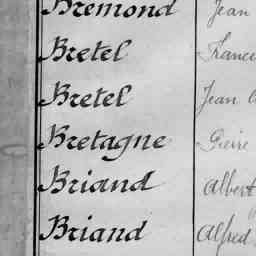 Bremond Jean
Bretel France
Bretel Jean
Bretagne Pierre
Briand Albert
Briand Alfred